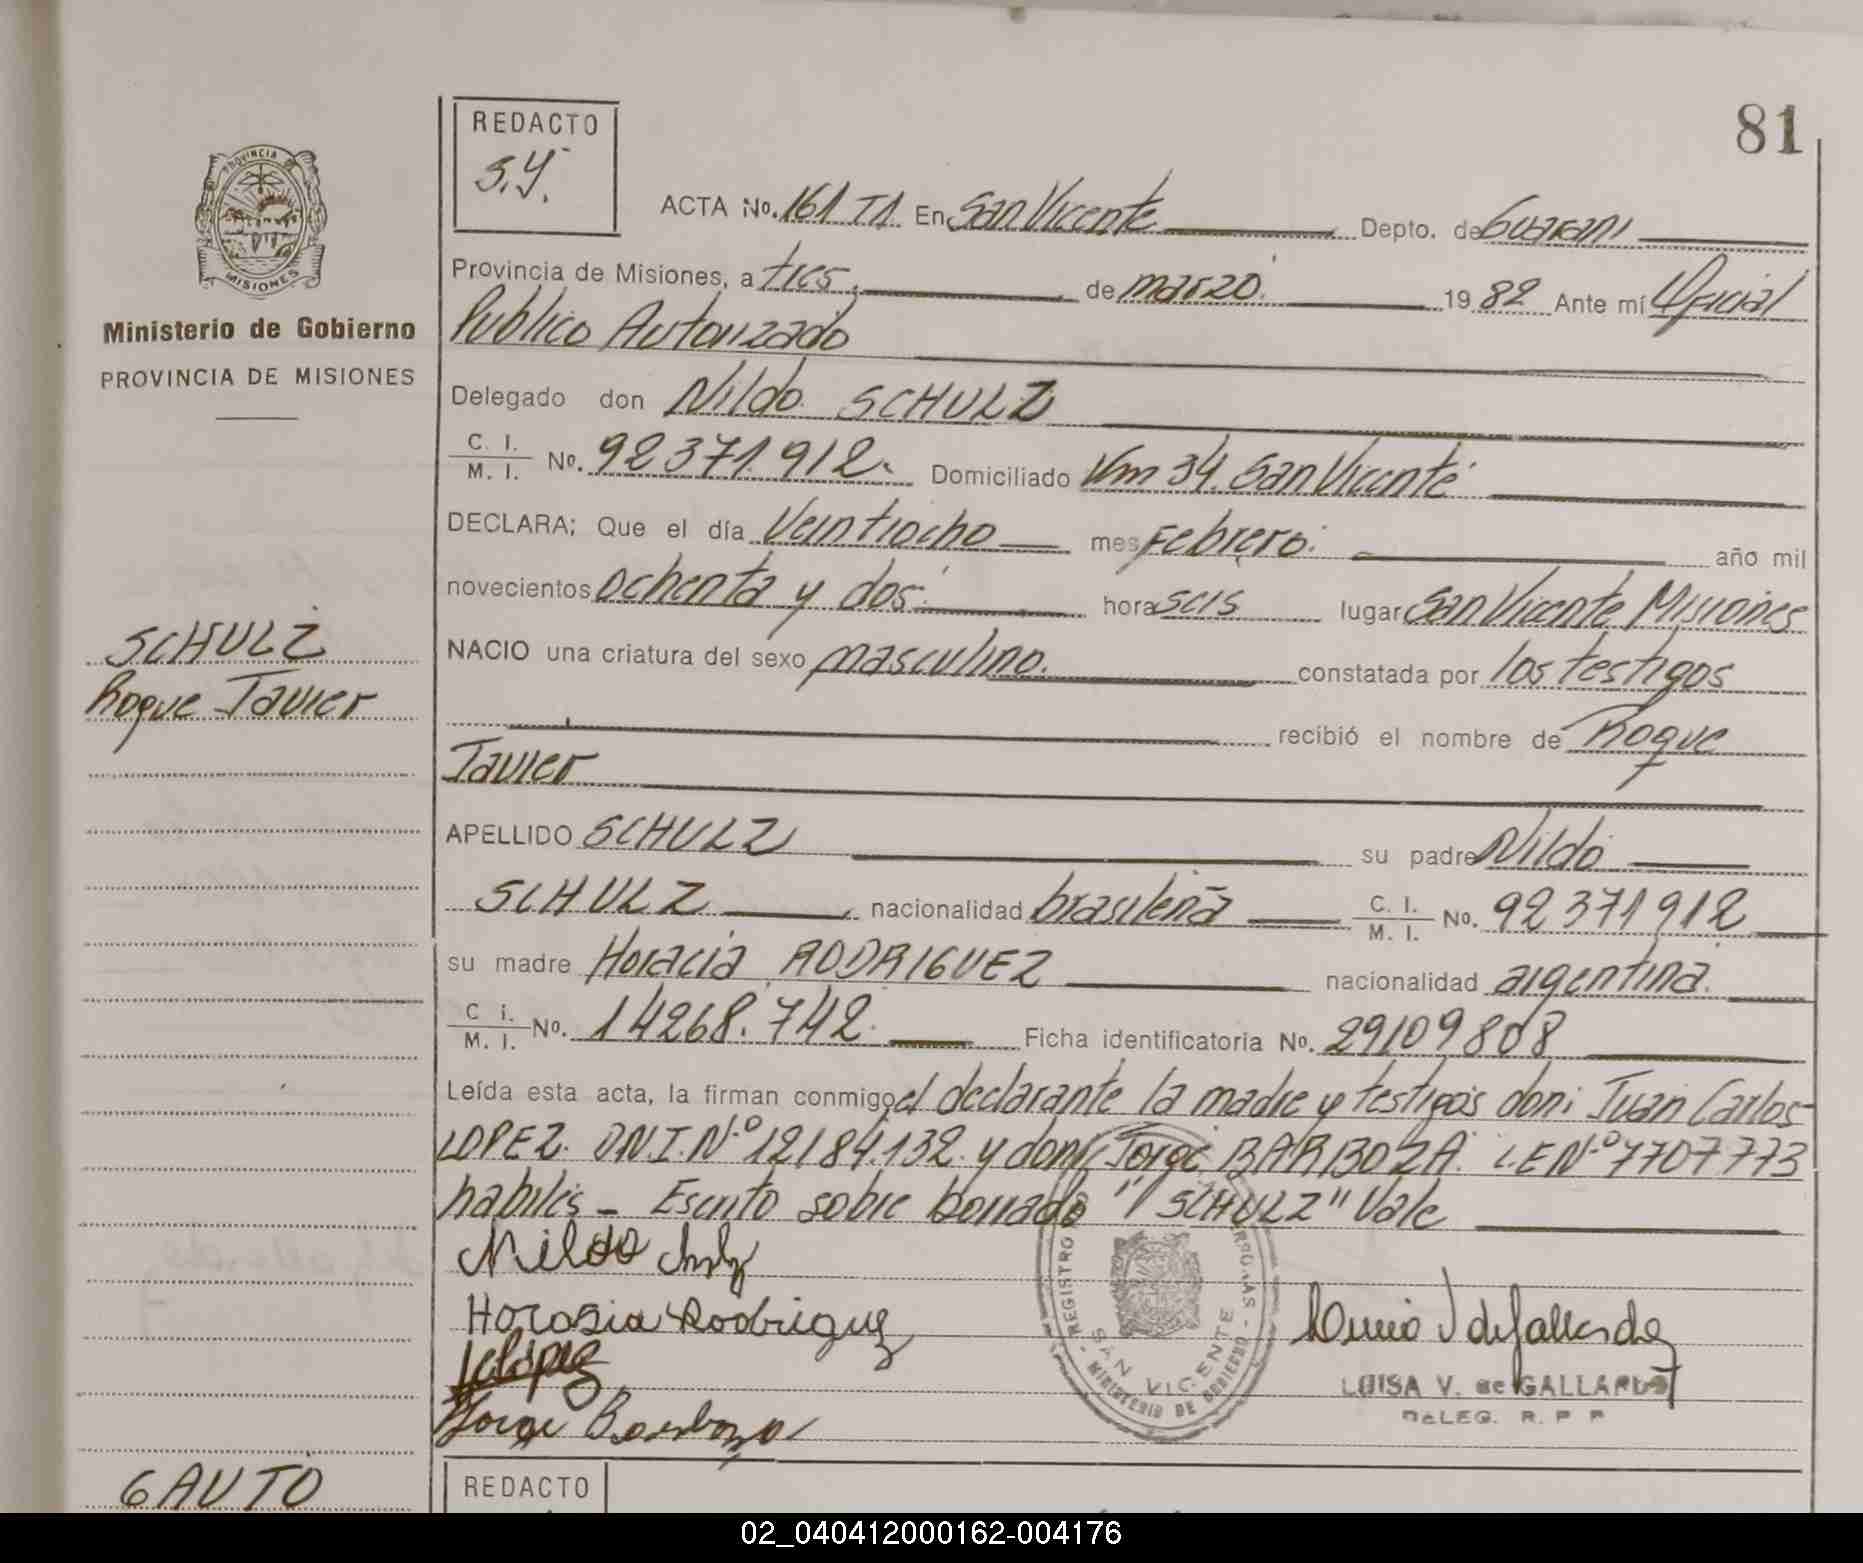 81
REDACTO
S.Y.
PROVINCIA
MISIONES
Ministerio de Gobierno
PROVINCIA DE MISIONES
ACTA No. 161 T1 En San Vicente Depto. de Guarani
Provincia de Misiones, a tres de marzo. 1982 Ante mí Oficial
Publico Autorizado
Delegado don Nildo SCHULZ
C. I. / M. I. No. 92371.912. Domiciliado Km 34. San Vicente
DECLARA; Que el día Veintiocho mes Febrero. año mil
novecientos ochenta y dos. hora seis lugar San Vicente Misiones
SCHULZ
Roque Javier
NACIO una criatura del sexo masculino. constatada por los testigos
recibió el nombre de Roque
Javier
APELLIDO SCHULZ su padre Nildo
SCHULZ nacionalidad brasileña C. I. / M. I. No. 92371912
su madre Horacia RODRIGUEZ nacionalidad argentina.
C i. / M. I. No. 14268.742. Ficha identificatoria No. 29109808
Leída esta acta, la firman conmigo el declarante la madre y testigos don: Juan Carlos
LOPEZ. DNI.Nº12184.132. y don: Jorge BARBOZA. L.E Nº7707773
habiles - Escrito sobre borrado "SCHULZ" Vale
Nildo
Horasia Rodriguez
JcLópez
Jorge Barboza
REGISTRO
SAN VICENTE
MINISTERIO DE GOBIERNO
LUISA V. de GALLARDO
DELEG. R. P. P.
GAUTO
REDACTO
02_040412000162-004176